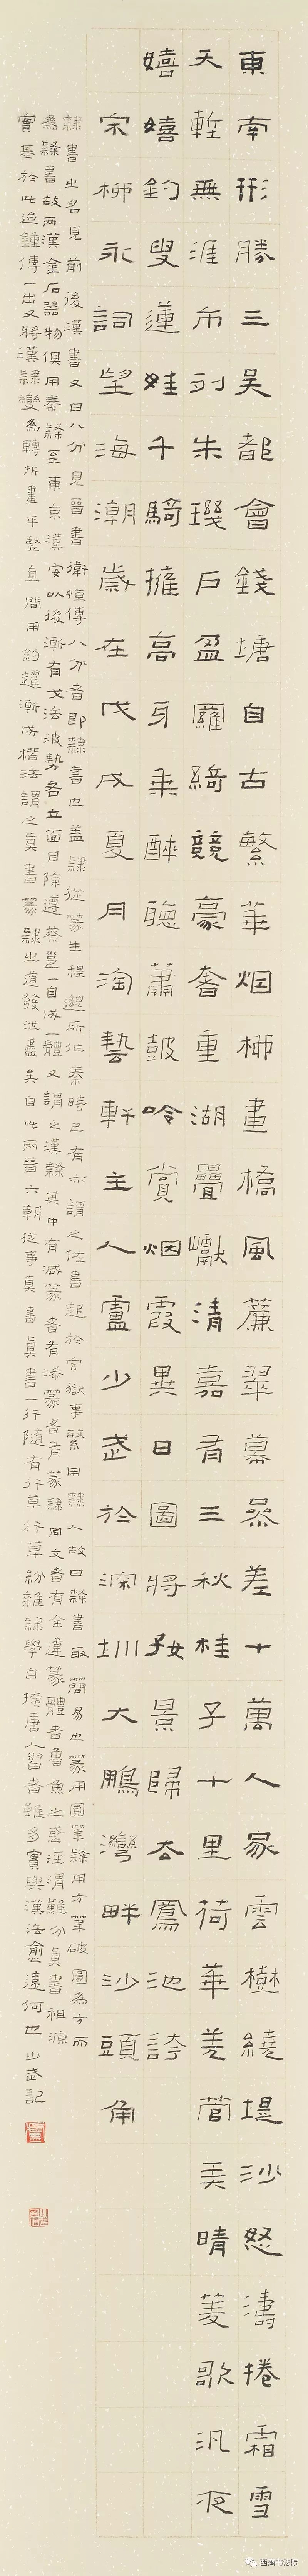 東南形勝三吳都會錢塘自古繁華烟柳畫橋風簾翠幕參差十萬人家雲樹繞堤沙怒濤捲霜雪
天塹無涯市列朱璣戶盈羅綺競豪奢重湖疊巘清嘉有三秋桂子十里荷華羌管弄晴菱歌汎夜
嬉嬉釣叟蓮娃千騎擁高牙乘醉聽蕭鼓吟賞烟霞異日圖將好景歸去鳳池誇
宋柳永詞望海潮歲在戊戌夏月淘藝軒主人盧少武於深圳大鵬灣畔沙頭角
隸書之名見前後漢書又曰八分見晉書衛恒傳八分者即隸書也蓋隸從篆生程邈所作秦時已有亦謂之佐書起於官獄事繁用隸人故曰隸書取簡易也篆用圓筆隸用方筆破圓為方而
為隸書故兩漢金石器物俱用秦隸至東京漢安以後漸有戈法波勢各立面目陳遵蔡邕自成一體又謂之漢隸其中有減篆者有添篆者有篆隸同文者有全違篆體者魯魚之惑涇渭難分真書祖源
實基於此迨鍾傳一出又將漢隸變為轉折畫平豎直間用鈎趯漸成楷法謂之真書篆隸之道發泄盡矣自此兩晉六朝從事真書真書一行隨有行草行草紛雜隸學自掩唐人習者雖多實與漢法愈遠何也少武記
西海书法院